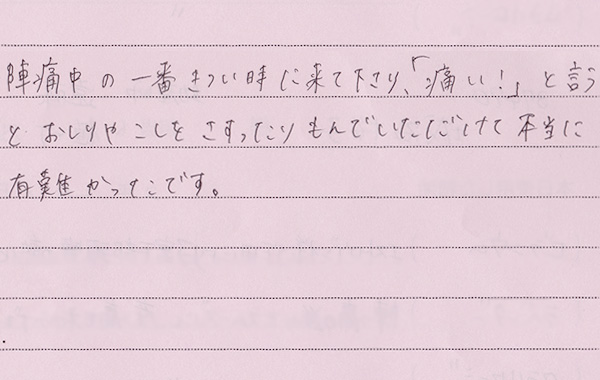 陣痛中の一番きつい時に来て下さり、「痛い!」と言う
とおしりやこしをさすったりもんでいただけて本当に
有難かったです。